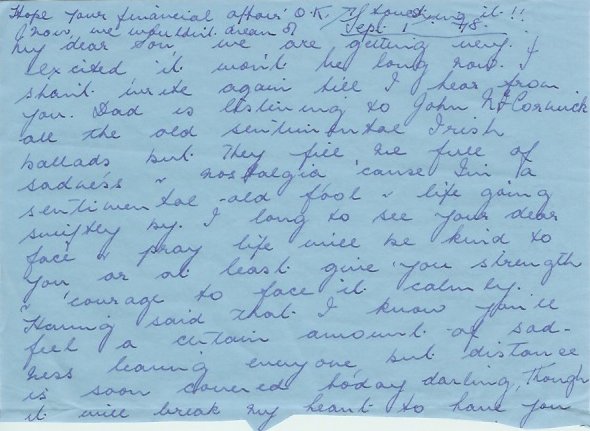 Hope your financial affairs O.K. If
it!!
I now we wouldn't dream of
Sept. 1 78.
My dear Son, we are getting very
excited it won't be long now. I
shan't write again till I hear from
you. Dad is listening to John McCormick
all the old sentimental Irish
ballads but they fill me full of
sadness & nostalgia 'cause I'm a
sentimental old fool & life going
swiftly by. I long to see your dear
face & pray life will be kind to
you or at least give you strength
& courage to face it calmly.
Having said that I know you'll
feel a certain amount of sad-
ness leaving everyone, but distance
is soon covered today darling, though
it will break my heart to have you